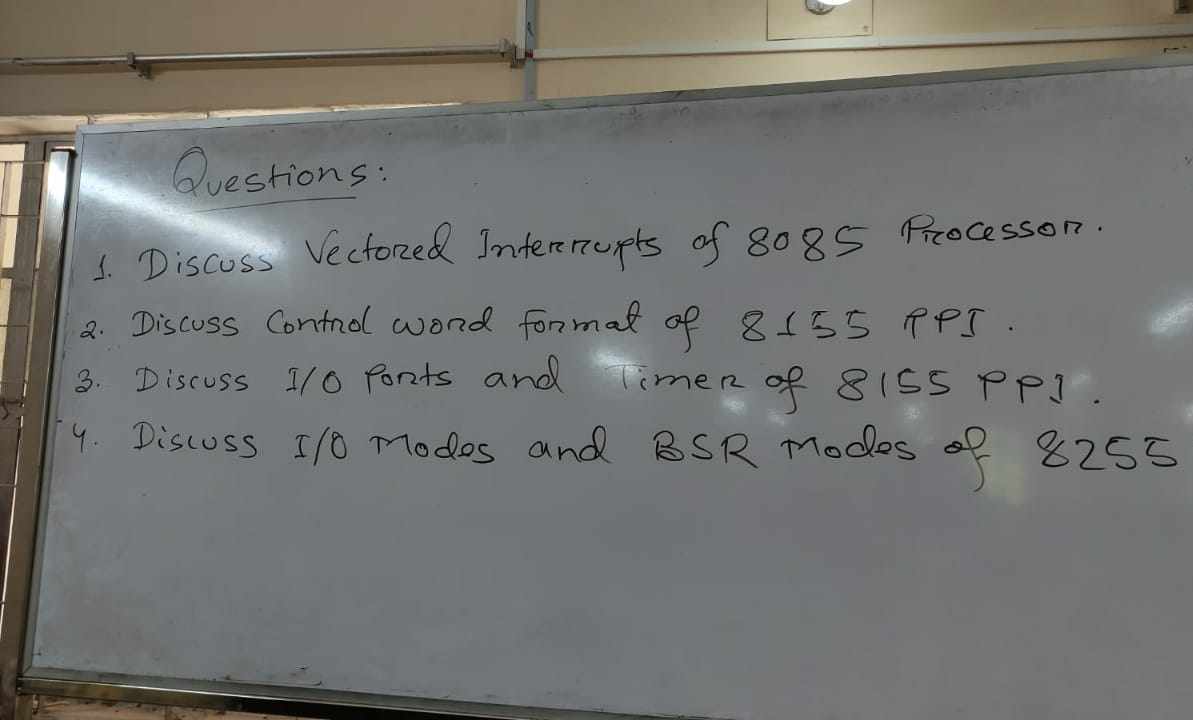 Questions:
1. Discuss Vectored Interrupts of 8085 Processor.
2. Discuss Control word format of 8155 PPI.
3. Discuss I/O Ports and Timer of 8155 PPI.
4. Discuss I/O Modes and BSR Modes of 8255